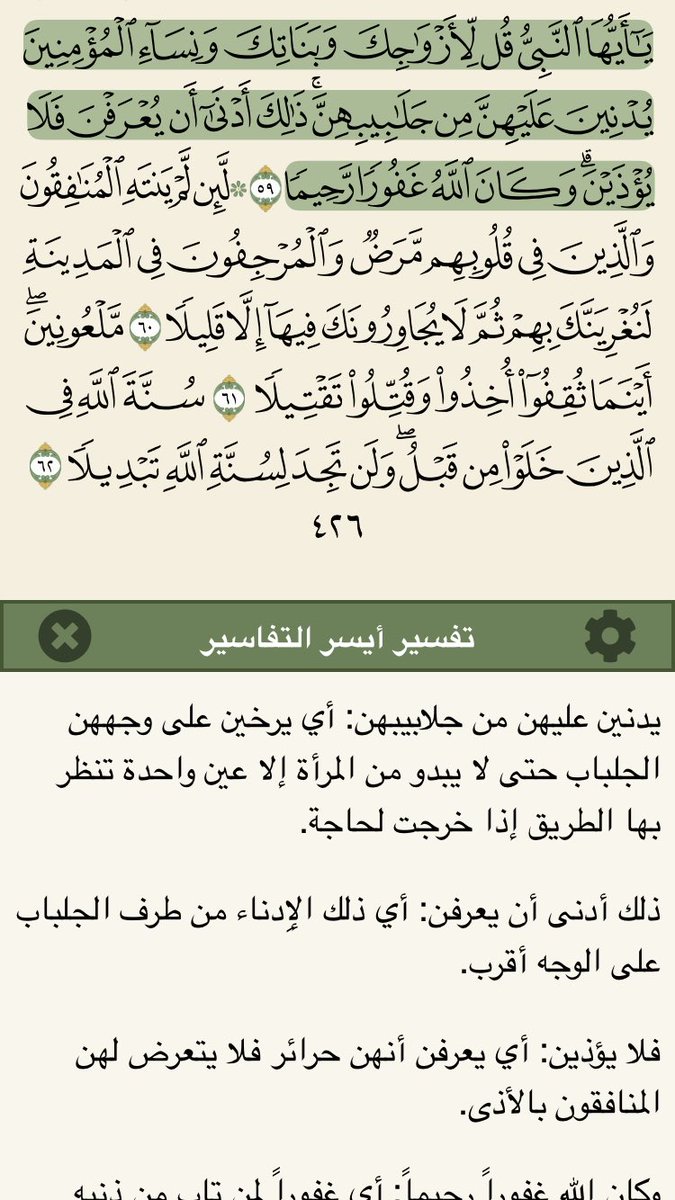 يَٰٓأَيُّهَا ٱلنَّبِيُّ قُل لِّأَزۡوَٰجِكَ وَبَنَاتِكَ وَنِسَآءِ ٱلۡمُؤۡمِنِينَ
يُدۡنِينَ عَلَيۡهِنَّ مِن جَلَٰبِيبِهِنَّۚ ذَٰلِكَ أَدۡنَىٰٓ أَن يُعۡرَفۡنَ فَلَا
يُؤۡذَيۡنَۗ وَكَانَ ٱللَّهُ غَفُورٗا رَّحِيمٗا ٥٩ ۞ لَّئِن لَّمۡ يَنتَهِ ٱلۡمُنَٰفِقُونَ
وَٱلَّذِينَ فِي قُلُوبِهِم مَّرَضٞ وَٱلۡمُرۡجِفُونَ فِي ٱلۡمَدِينَةِ
لَنُغۡرِيَنَّكَ بِهِمۡ ثُمَّ لَا يُجَاوِرُونَكَ فِيهَآ إِلَّا قَلِيلٗا ٦٠ مَّلۡعُونِينَۖ
أَيۡنَمَا ثُقِفُوٓاْ أُخِذُواْ وَقُتِّلُواْ تَقۡتِيلٗا ٦١ سُنَّةَ ٱللَّهِ فِي
ٱلَّذِينَ خَلَوۡاْ مِن قَبۡلُۖ وَلَن تَجِدَ لِسُنَّةِ ٱللَّهِ تَبۡدِيلٗا ٦٢
٤٢٦
تفسير أيسر التفاسير
يدنين عليهن من جلابيبهن: أي يرخين على وجههن
الجلباب حتى لا يبدو من المرأة إلا عين واحدة تنظر
بها الطريق إذا خرجت لحاجة.
ذلك أدنى أن يعرفن: أي ذلك الإدناء من طرف الجلباب
على الوجه أقرب.
فلا يؤذين: أي يعرفن أنهن حرائر فلا يتعرض لهن
المنافقون بالأذى.
وكان الله غفوراً رحيماً: أي غفوراً لمن تاب من ذنبه